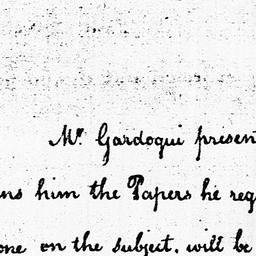 Mr. Gardoqui presen
ns him the Papers he req
one on the subject, will be